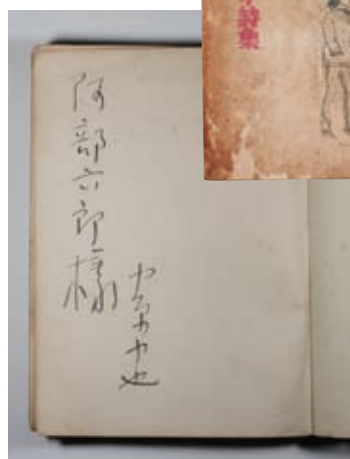 詩集
阿部六郎様
中原中也